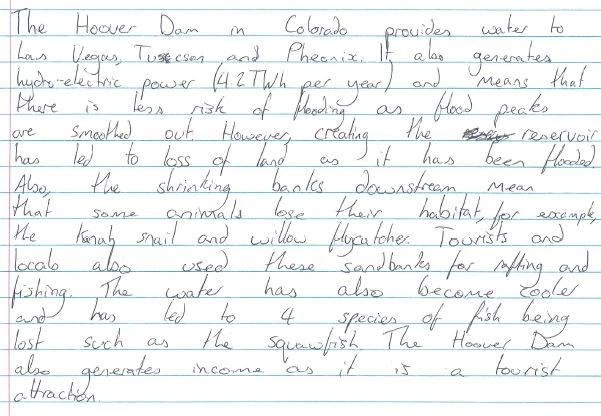 The Hoover Dam in Colorado provides water to
Las Vegas, Tuscson and Pheonix. It also generates
hydro-electric power (4.2TWh per year) and means that
there is less risk of flooding as flood peaks
are smoothed out. However, creating the reservoir
has led to loss of land as it has been flooded.
Also, the shrinking banks downstream mean
that some animals lose their habitat, for example,
the Kanab snail and willow flycatcher. Tourists and
locals also used these sandbanks for rafting and
fishing. The water has also become cooler
and has led to 4 species of fish being
lost such as the squawfish. The Hoover Dam
also generates income as it is a tourist
attraction.